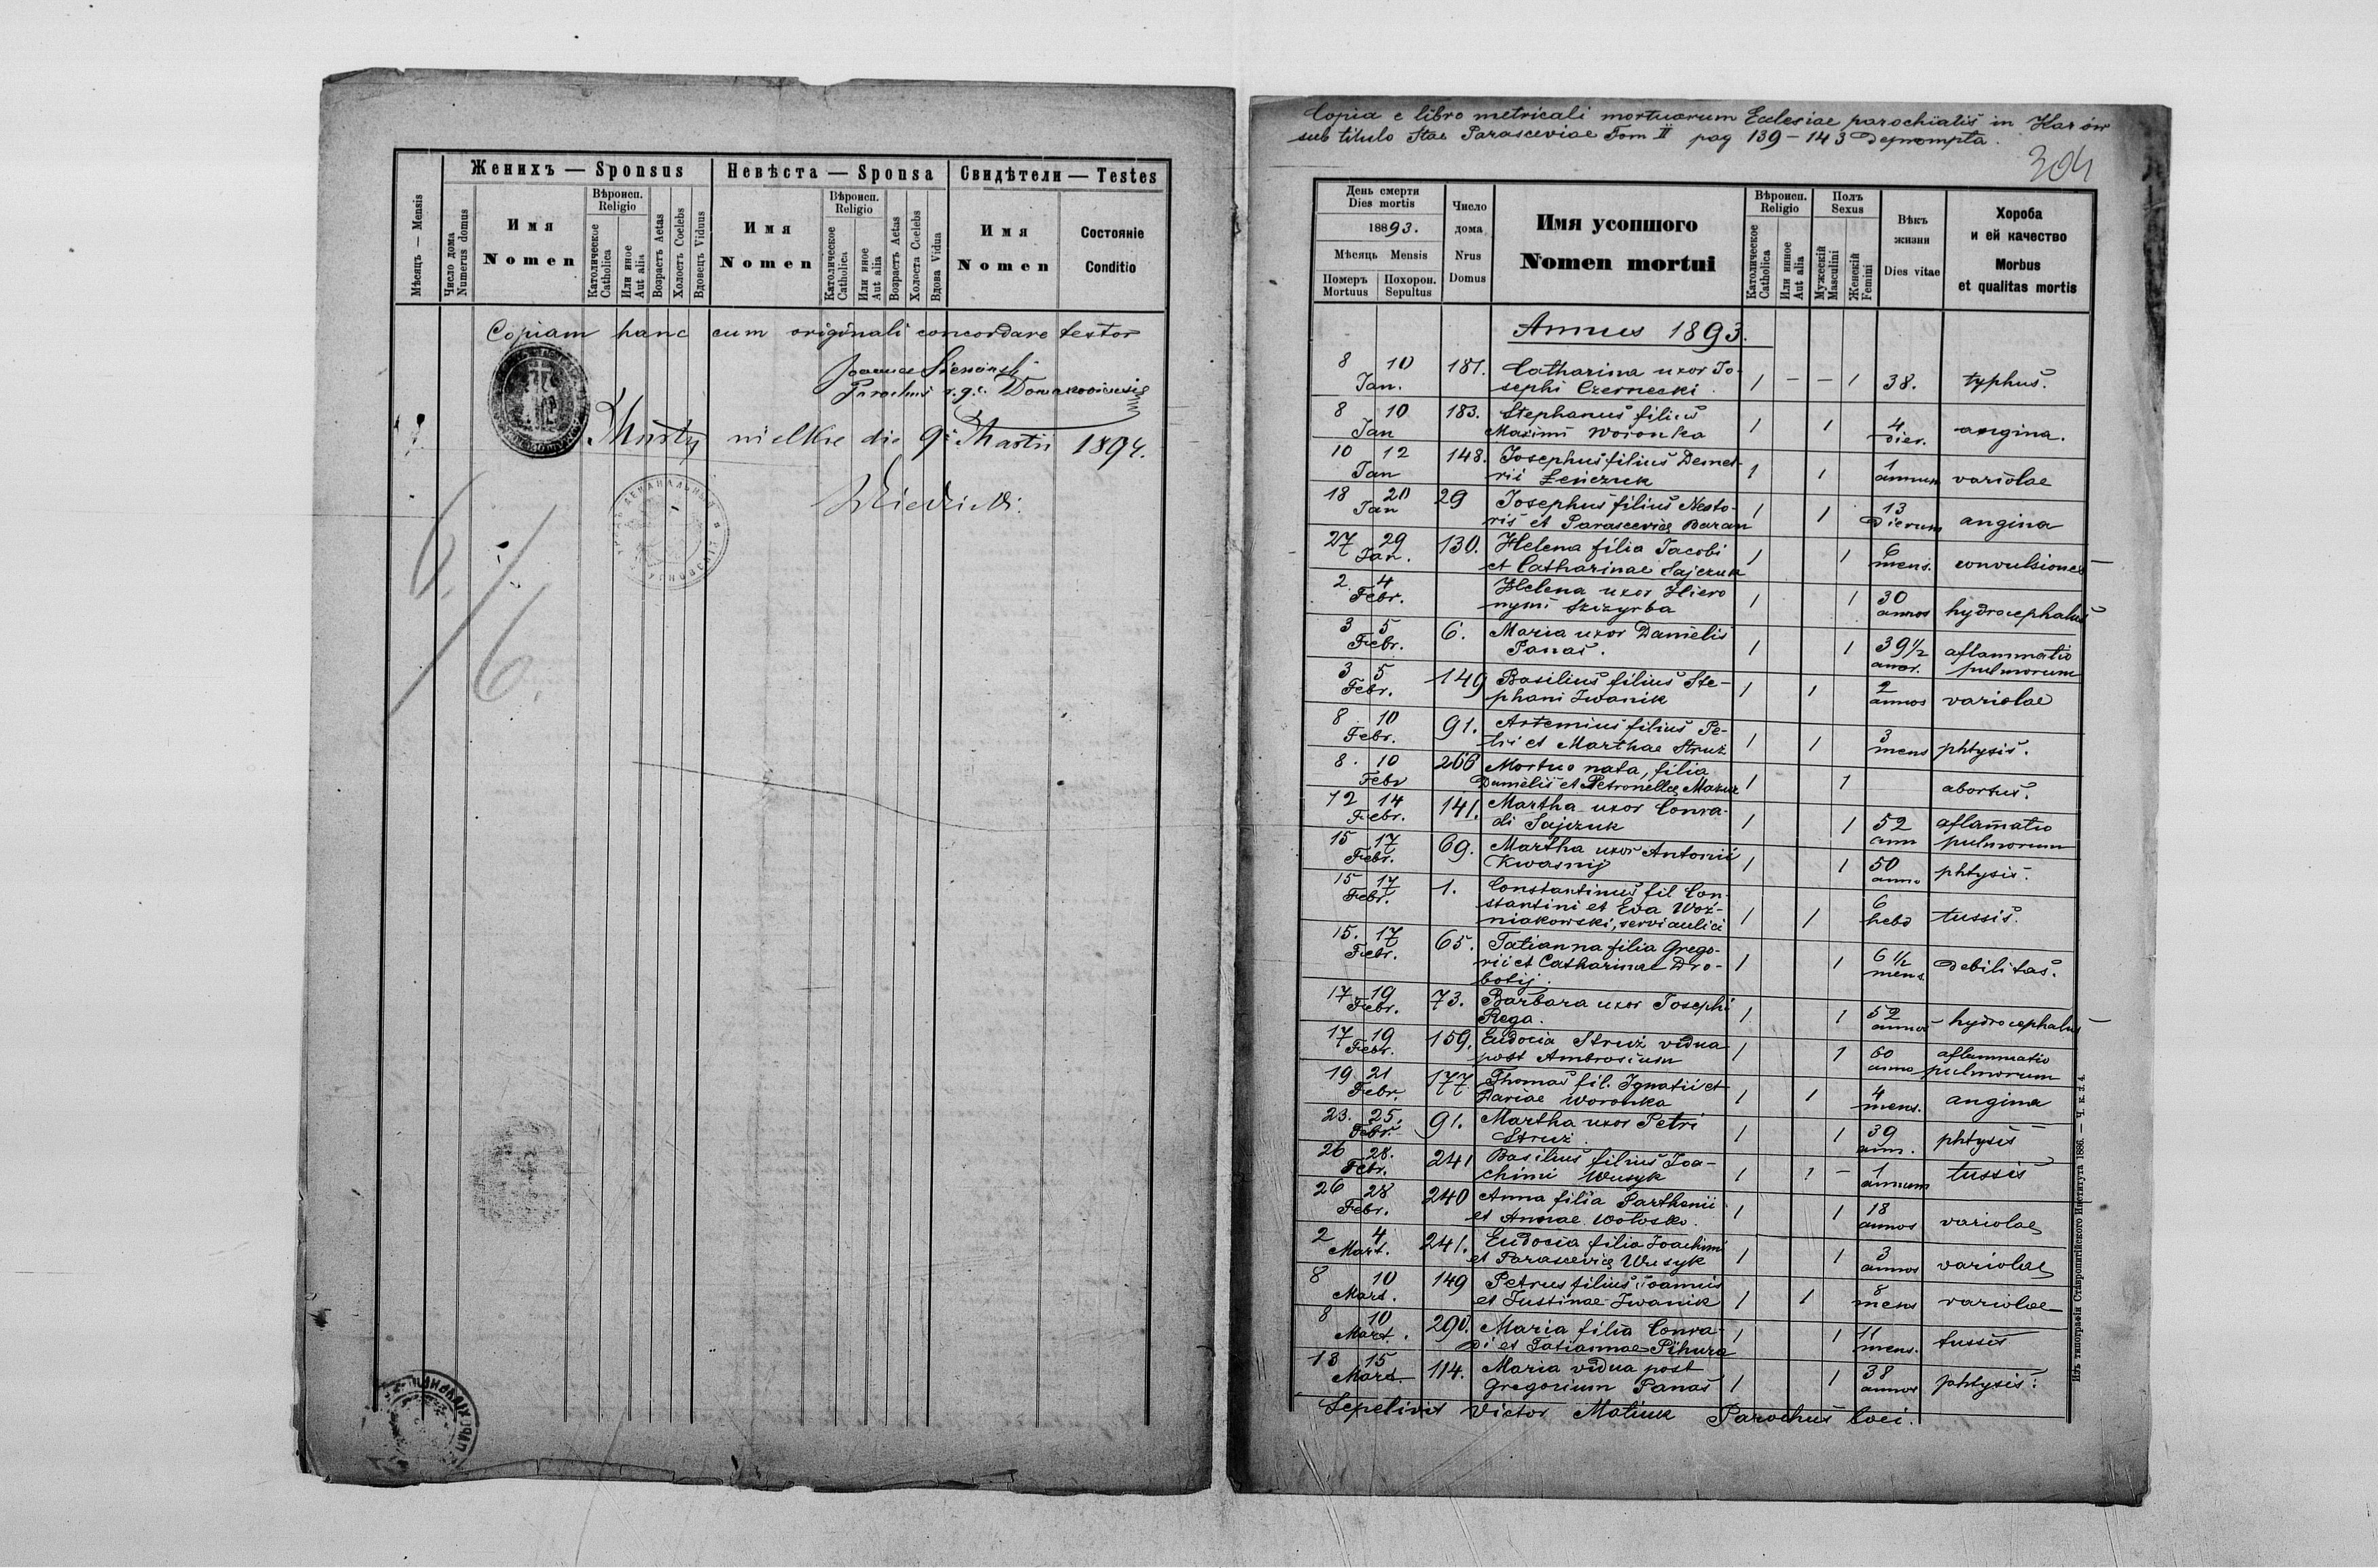 Женихъ — Sponsus
Невѣста — Sponsa
Свидѣтели — Testes
Мѣсяцъ — Mensis
Число дома
Numerus domus
Имя
Nomen
Вѣроисп.
Religio
Католическое
Catholica
Или иное
Aut alia
Возрастъ Aetas
Холостъ Coelebs
Вдовецъ Viduus
Имя
Nomen
Вѣроисп.
Religio
Католическое
Catholica
Или иное
Aut alia
Возрастъ Aetas
Холоста Coelebs
Вдова Vidua
Имя
Nomen
Состояніе
Conditio
Copiam hanc cum originali concordare testor
Parochus r. g. c.
die 9 Martii 1894.
6/6.
Copia e libro metricali mortuorum Ecclesiae parochialis in Karów
sub titulo Stae Parasceviae Tom II pag 139-143 deprompta.
304
День смерти
Dies mortis
1893.
Мѣсяць Mensis
Померъ
Mortuus
Похорон.
Sepultus
Число
дома
Nrus
Domus
Имя усопшого
Nomen mortui
Вѣроисп.
Religio
Католическое
Catholica
Или инное
Aut alia
Полъ
Sexus
Мужескій
Masculini
Женскій
Femini
Вѣкъ
жизни
Dies vitae
Хороба
и ей качество
Morbus
et qualitas mortis
Annus 1893.
8 10 181. Catharina uxor Jo-
Jan. sephi Czernecki 1 – – 1 38. typhus.
8 10 183. Stephanus filius 4
Jan Maximi Woronka 1 1 dier. angina.
10 12 148. Josephus filius Deme- 1
Jan trii Zeńczuk 1 1 annum variolae
18 20 29 Josephus filius Nesto- 13
Jan ris et Parasceviae Baran 1 1 dierum angina
27 29 130. Helena filia Jacobi 6
Jan. et Catharinae Sajczuk 1 1 mens. convulsiones
2 4 Helena uxor Hiero 30
Febr. nymi 1 1 annos hydrocephalus
3 5 6. Maria uxor Danielis 39 1/2 aflammatio
Febr. Panas. 1 1 annor. pulmorum
3 5 149 Basilius filius Ste- 2
Febr. phani Iwanik 1 1 annos variolae
8 10 91. Artemius filius Pe- 3
Febr. tri et Marthae Struż 1 1 mens phtysis.
8. 10 266 Mortuo nata, filia
Febr Danielis et Petronellae Mazur 1 1 abortus.
12 14 141. Martha uxor Conra- 52 aflamatio
Febr. di Sajczuk 1 1 ann pulmorum
15 17 69. Martha uxor Antonii 50
Febr. Kwasnij 1 1 anno phtysis.
15 17 1. Constantinus fil Con-
Febr. stantini et Eva Woź- 6
niakowski, servi aulici 1 1 hebd tussis.
15. 17 65. Tatianna filia Grego- 6 1/2
Febr. rii et Catharinae Dro- 1 1 mens. debilitas.
botij.
17 19 73. Barbara uxor Josephi 52
Febr. Rega. 1 1 annos hydrocephalus
17 19 159. Eudocia Struż vidua 60 aflammatio
Febr. post Ambrosium 1 1 anno pulmorum
19 21 177 Thomas fil. Ignatii et 4
Febr. Dariae Woronka 1 1 mens. angina
23. 25. 91. Martha uxor Petri 39
Febr. Struż 1 1 ann. phtysis
26 28. 241 Basilius filius Joa- 1
Febr. chimi Wusyk 1 1 – annum tussis
26 28 240 Anna filia Parthenii 18
Febr. et Annae Wołosko. 1 1 annos variolae
2 4 241. Eudocia filia Joachimi 3
Mart. et Parasceviae Wusyk 1 1 annos variolae
8 10 149 Petrus filius Joannis 8
Mart. et Justinae Iwanik 1 1 mens variolae
8 10 290. Maria filia Conra- 11
Mart. di et Tatiannae Pihura 1 1 mens. tussis
13 15 114. Maria vidua post 38
Mart. Gregorium Panas 1 1 annos phtysis.
Sepelivit Victor Matiuk Parochus loci.
Изъ типографіи Ставропигійского Института 1886. — Ч. к. d. 4.